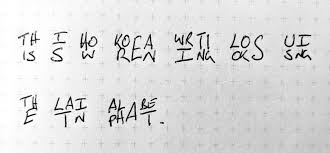 THIS IS HOW KOREAN WRITING LOOKS USING
THE LATIN ALPHABET.